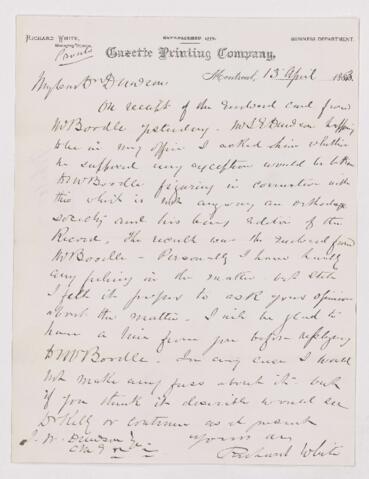 RICHARD WHITE,
Managing Director.
ESTABLISHED 1778.
BUSINESS DEPARTMENT.
Private
Gazette Printing Company,
Montreal, 13 April 1883.
My dear Dr Dawson
On receipt of the enclosed card from
Mr Boodle yesterday. Mr S E Dawson happening
to be in my office I asked him whether
he supposed any exception would be taken
to Mr Boodle figuring in connection with
this which is not anyway an orthodox
society and his being editor of the
Record. The result was the enclosed from
Mr Boodle - Personally I have hardly
any feeling in the matter but still
I felt it proper to ask your opinion
about the matter. I will be glad to
have a line from you before replying
to Mr Boodle. In any case I would
not make any fuss about it but
if you think it desirable would see
Dr Kelly or continue as at present
Yours truly
J. W. Dawson
Richard White